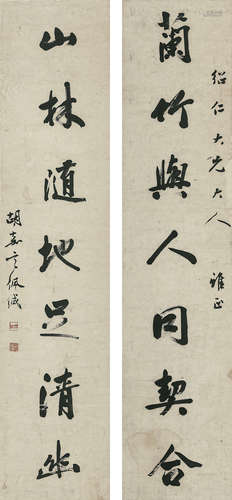 蘭竹與人同契合
紹仁大兄大人 雅正
山林隨地足清幽